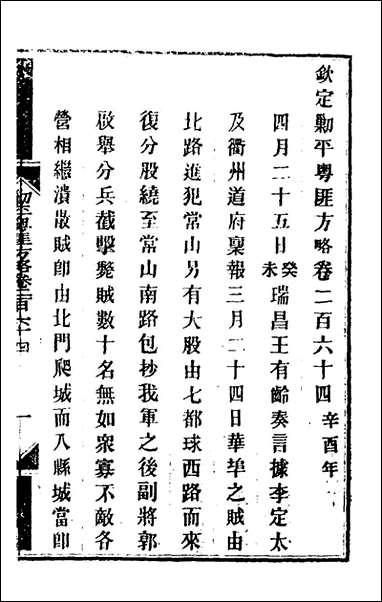 欽定勦平粵匪方略卷二百六十四辛酉年
四月二十五日癸未瑞昌王有齡奏言據李定太
及衢州道府稟報三月二十四日華埠之賊由
北路進犯常山另有大股由七都球西路而來
復分股繞至常山南路包抄我軍之後副將郭
啟舉分兵截擊斃賊數十名無如眾寡不敵各
營相繼潰散賊卽由北門爬城而入縣城當卽
方略卷二百六十四
一